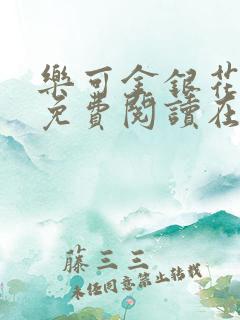 樂可金銀花
免費閱讀在
藤三三
未经同意禁止转载